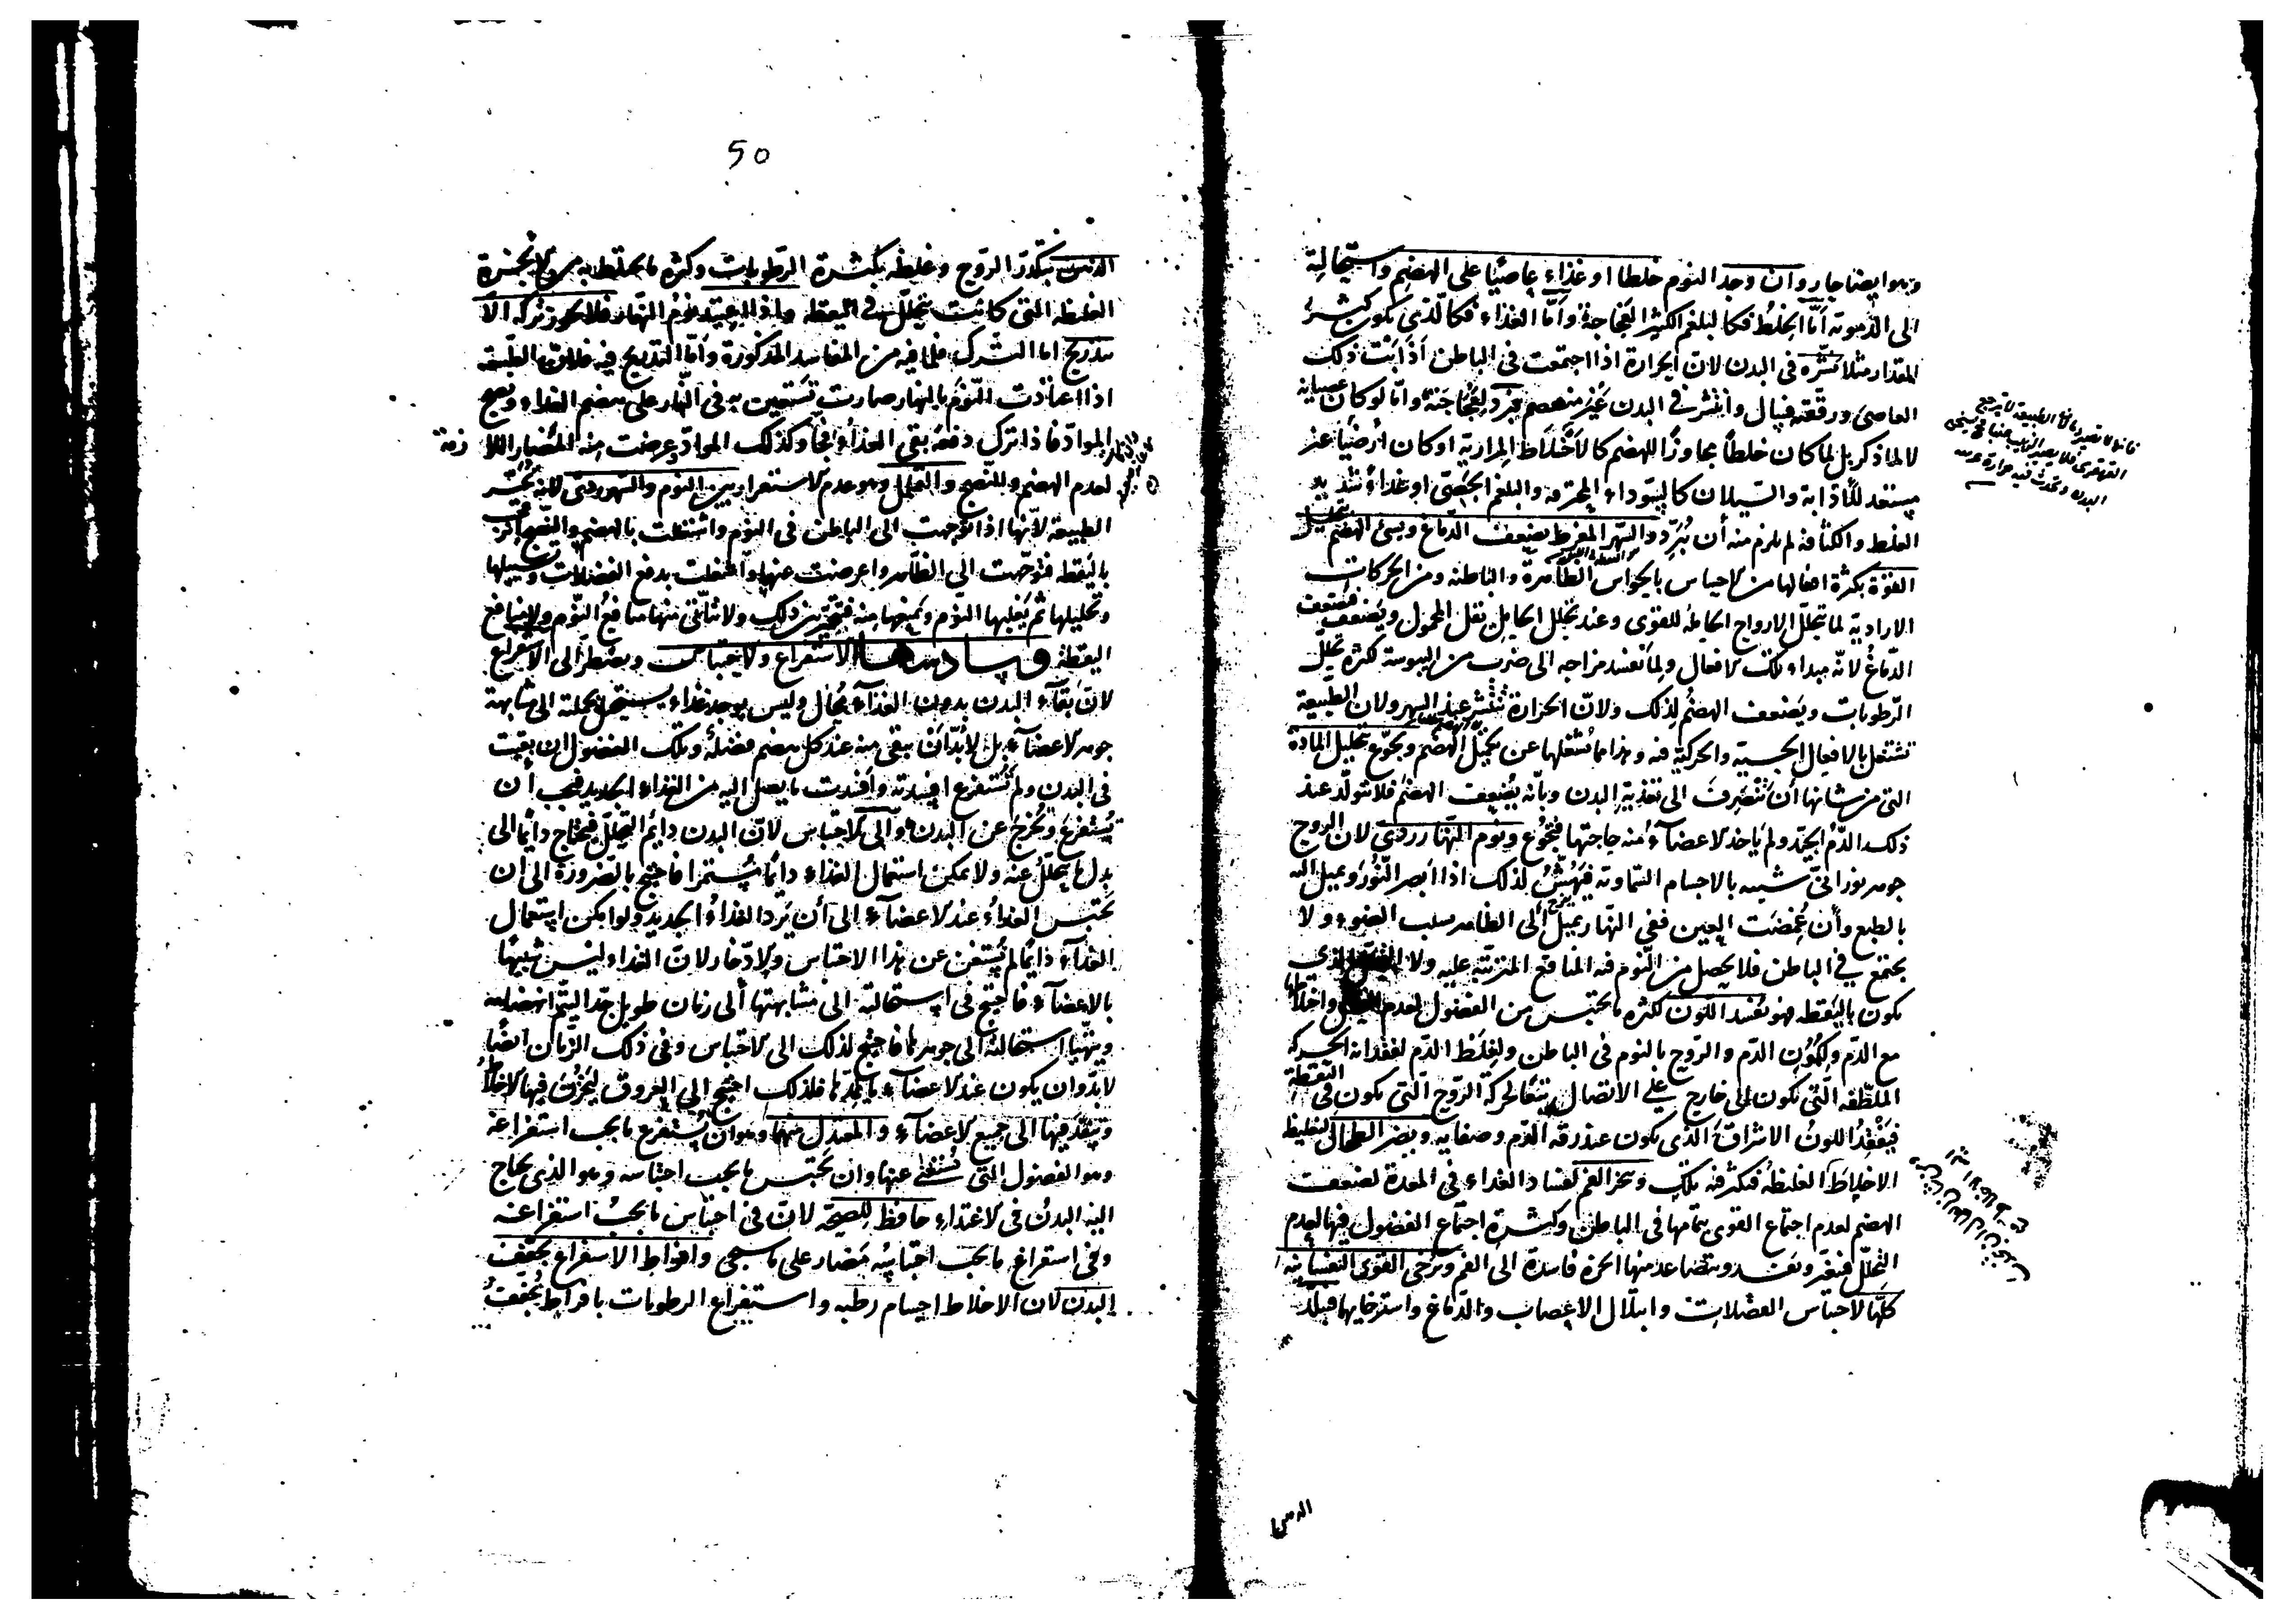 وهو ايضا جار وان وجد النوم خلطا او غذاء عاصيا على الهضم واستحالته
الى الدموية امّا الخلط فكالبلغم الكثير الفجاجة وامّا الغذاء فكالذى يكون كثير
المقدار مثلا نشره فى البدن لان الحرارة اذا اجتمعت فى الباطن اذابت ذلك
العاصى ورققته فسال وانتشر فى البدن غير منهضم فبرد لفجاجته وامّا لو كان عصيانه
لا لما ذكر بل لما كان خلطا مجاوزا للهضم كالاخلاط المرارية او كان ارضيا غير
مستعد للاذابة والسيلان كالسوداء المحترقه والبلغم الجصى او غذاء شديد
الغلظ والكثافه لم يلزم منه أن يُبرّد والسهر المفرط يضعف الدماغ ويسئ الهضم
القوّة بكثرة افعالها من الاحساس بالحواس الظاهرة والباطنه ومن الحركات
الارادية لما تتحلل الارواح الحاملة للقوى وعند تحلل الحامل يقل المحمول ويضعف فيضعف
الدماغ لانه مبداء تلك الافعال ولما يفسد مزاجه الى ضرب من اليبوسة لكثرة تحلّل
الرطوبات ويضعف الهضم لذلك ولانّ الحرارة تنتشر عند السهر ولان الطبيعة
تشتغل بالافعال الحسية والحركية فيه وهذا مما يشغلها عن تكميل الهضم ويجوّع بتحليل المادة
التى من شانها أن تنصرف الى تغذية البدن وبأنه يضعف الهضم فلا يتولد عند
ذلك الدّم الجيّد ولم ياخذ الاعضاء منه حاجتها فتجوع ونوم النهار ردى لان الروح
جوهر نورانىّ شبيه بالاجسام السماوية فيهشّ لذلك اذا ابصر النّور ويميل اليه
بالطبع وأن غمضت العين ففى النهار يميل الى الظاهر سلب الضوء ولا
يجتمع فى الباطن فلا يحصل من النّوم فيه المنافع المترتبة عليه ولا الذى
يكون باليقظه فهو يفسد اللون لكثرة ما يحتبس من الفضول لعدم واختلاطها
مع الدّم ولكون الدّم والروح بالنوم فى الباطن ولغلظ الدّم لفقدانه الحركة
الملطّفه الّتى تكون الى خارج على الاتصال تبعا لحركة الرّوح الّتى تكون فى اليقظة
فيفقد اللون الاشراق الّذى يكون عند رقة الدّم وصفايه ويضر الطحال لتغليظ
الاخلاط الغليظه فيكثر فيه تلك ويبخر الفم لفساد الغذاء فى المعدة لضعف
الهضم لعدم اجتماع القوى بتمامها فى الباطن وكثرة اجتماع الفضول فيها لعدم
التحلّل فيتغيّر ويفسد ويتصاعد منها ابخرة فاسدة الى الفم ويرخى القوى النفسانية
كلّها لاحتباس الفضلات وابتلال الاعصاب والدماغ واسترخايها فيبلّد
50
الذهن بتكدّر الروح وغلظه بكثرة الرطوبات وكثرة ما يختلط به من الابخرة
الغليظه التى كانت تتحلّل فى اليقظه واذا اعتيد نوم النهار فلا يجوز تركه الّا
بتدريج اما الترك فلما فيه من المفاسد المذكورة وامّا التدريج فيه فلانّ الطبيعة
اذا اعتادت النّوم بالنهار صارت تستعين به فى النهار على هضم الغذاء ونضج
الموادّ فاذا ترك دفعة بقى الغذاء فجا وكذلك الموادّ وعرضت منه المضار اللازمة
لعدم الهضم والنضج والتملل وهو عدم الاستقرار بين النوم والسهر ردى لانه يحيّر
الطبيعه لانّها اذا توجهت الى الباطن فى النوم واشتغلت بالهضم والنضج
باليقظه فتوجّهت الى الظاهر واعرضت عنها واشتغلت بدفع الفضلات وتسييلها
وتحليلها ثم يغلبها النوم ويمنعها منه فتتحيّر من ذلك ولا يتأتى منها منافع النّوم ولا منافع
اليقظه وسادسها الاستفراغ والاحتباس ويضطرّ الى الاستفراغ
لانّ بقاء البدن بدون الغذاء محال وليس يوجد غذاء يستحيل بكليته الى مشابهة
جوهر الاعضاء بل لابدّ أن يبقى منه عند كل هضم فضلة وتلك الفضول ان بقيت
فى البدن ولم تستفرغ افسدته وأفسدت ما يصل اليه من الغذاء الجديد فيجب أن
يُستفرغ ويُخرج عن البدن والى الاحتباس لانّ البدن دائم التحلّل فيحتاج دائما الى
بدل ما يتحلّل عنه ولا يمكن استعمال الغذاء دائما مستمرا فاحتيج بالضرورة الى ان
يحتبس الغذاء عند الاعضاء الى أن يرد الغذاء الجديد ولو امكن استعمال
الغذاء دائما لم يستغن عن هذا الاحتباس والادّخار لانّ الغذاء ليس شبيها
بالاعضاء فاحتيج فى استحالته الى مشابهتها الى زمان طويل جدا ليتم انهضامه
ويتهيّأ استحالته الى جوهرها فاحتيج لذلك الى الاحتباس وفى ذلك الزّمان ايضا
لابدّ وان يكون عند الاعضاء ما يمدّها فلذلك احتيج الى العروق ليخزن فيها الاخلاط
وينفذ فيها الى جميع الاعضاء والمعتدل منهما وهو ان يستفرغ ما يجب استفراغه
وهو الفضول التى يستغنى عنها وان يحتبس ما يجب احتباسه وهو الذى يحتاج
اليه البدن فى الاغتذاء حافظ للصحة لانّ فى احتباس ما يجب استفراغه
وفى استفراغ ما يجب احتباسه مضار على ما سيجئ وافراط الاستفراغ يجفّف
البدن لان الاخلاط اجسام رطبه واستفراغ الرطوبات بافراط يجفّف